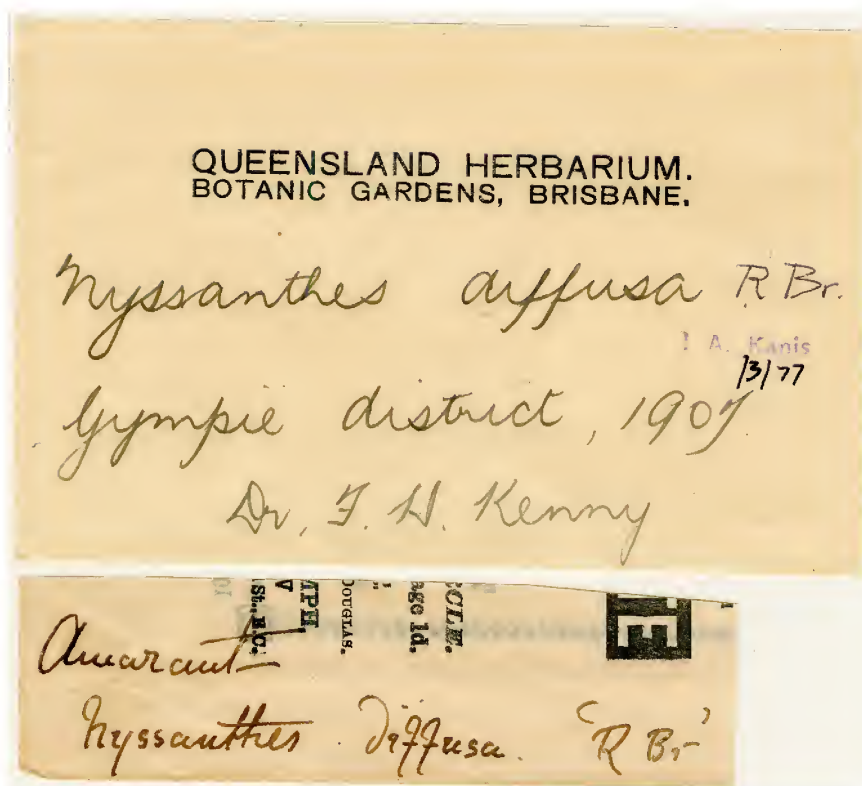 QUEENSLAND HERBARIUM.
BOTANIC GARDENS, BRISBANE.
Nyssanthes diffusa R Br.
! A. Kanis
/3/77
Gympie district, 1907
Dr. F. H. Kenny
CCLE.
age 1d.
DOUGLAS.
MPH,
St., E.C.
iE
Amarant
Nyssanthes diffusa. 'R Br'